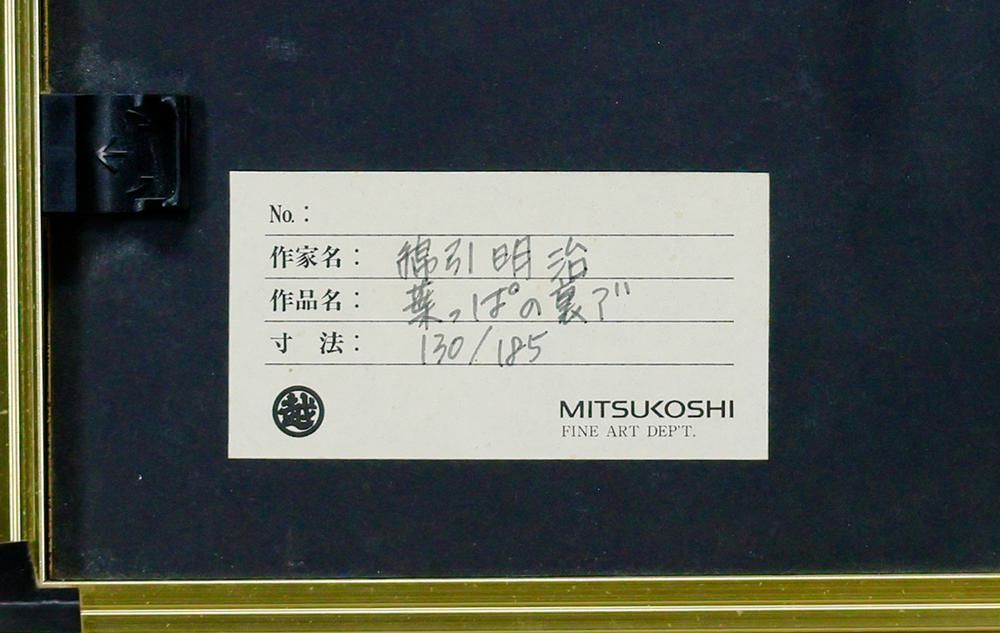 No. :
作家名 : 綿引明治
作品名 : 葉っぱの裏で
寸 法 : 130/185
越
MITSUKOSHI
FINE ART DEP'T.